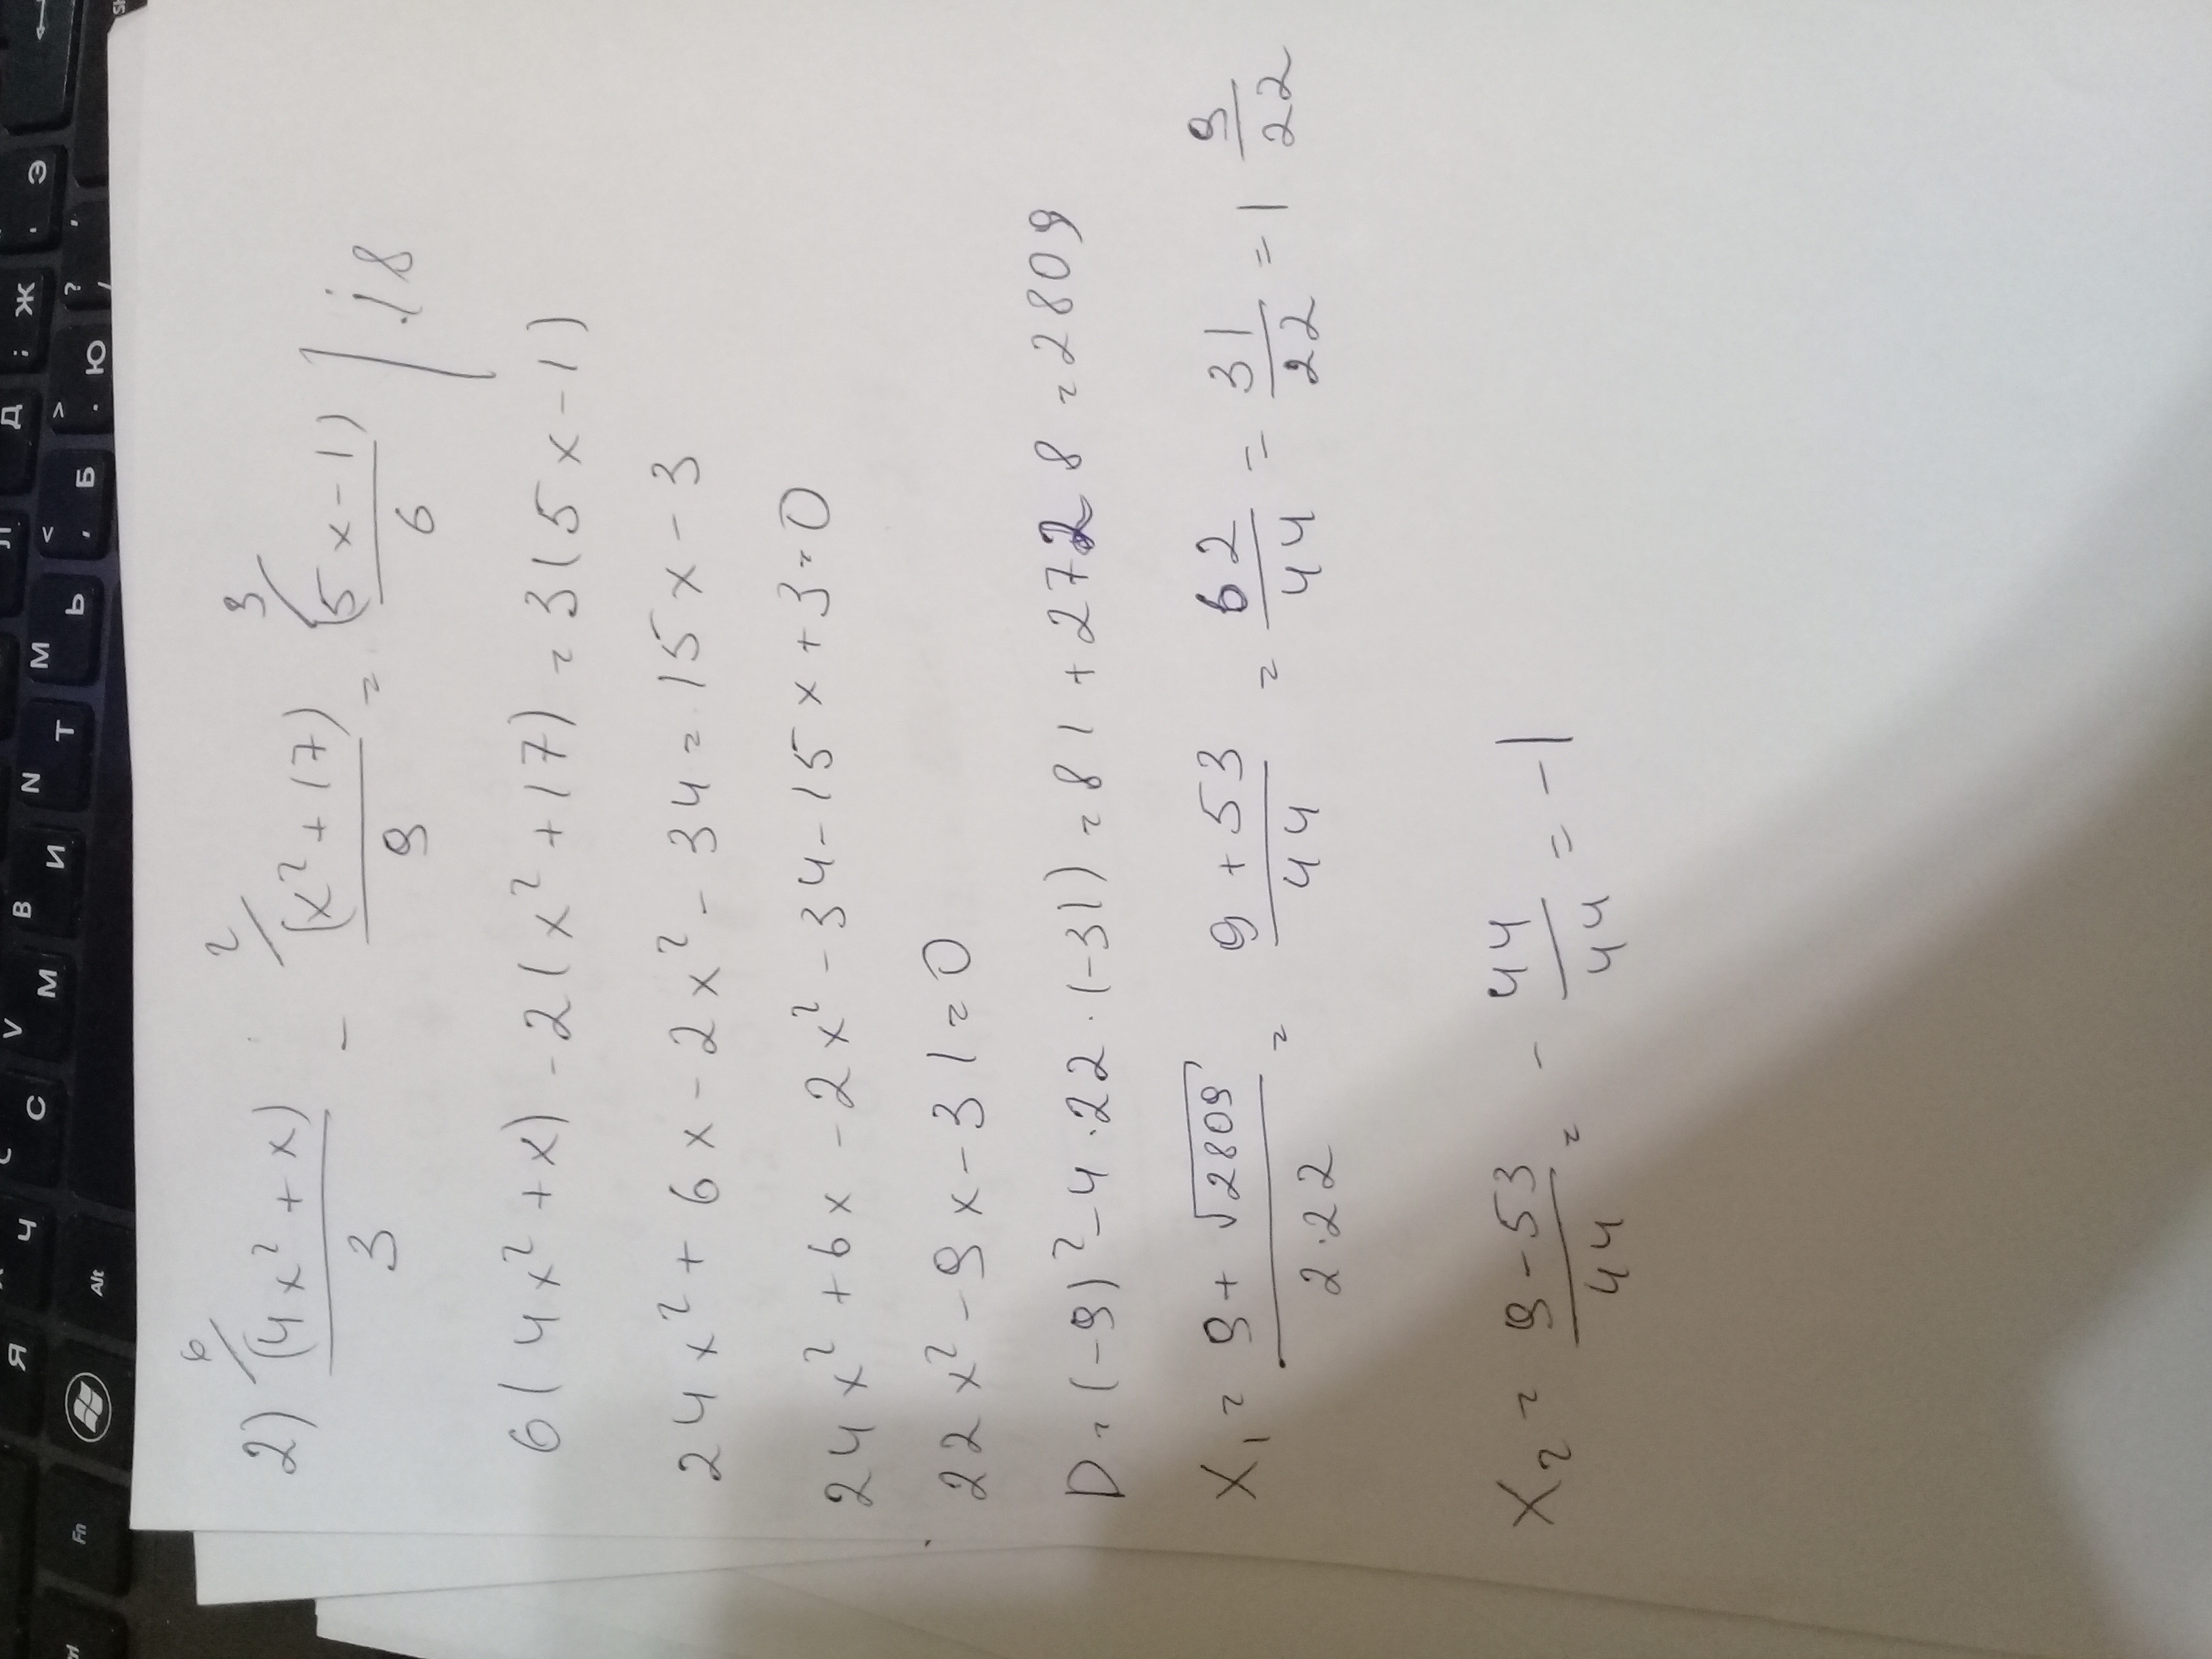 2) 6/(4x²+x)/3 - 2/(x²+17)/9 = 3/(5x-1)/6 | ·18
6(4x²+x)-2(x²+17)=3(5x-1)
24x²+6x-2x²-34=15x-3
24x²+6x-2x²-34-15x+3=0
22x²-9x-31=0
D=(-9)²-4·22·(-31)=81+2728=2809
x₁=(9+√2809)/(2·22)=(9+53)/44=62/44=31/22=1 9/22
x₂=(9-53)/44=-44/44=-1
Я Ч С V М В И N Т М Ь Б < , Л Д > . Ю ; Ж ? / . , Э '
Fn Alt